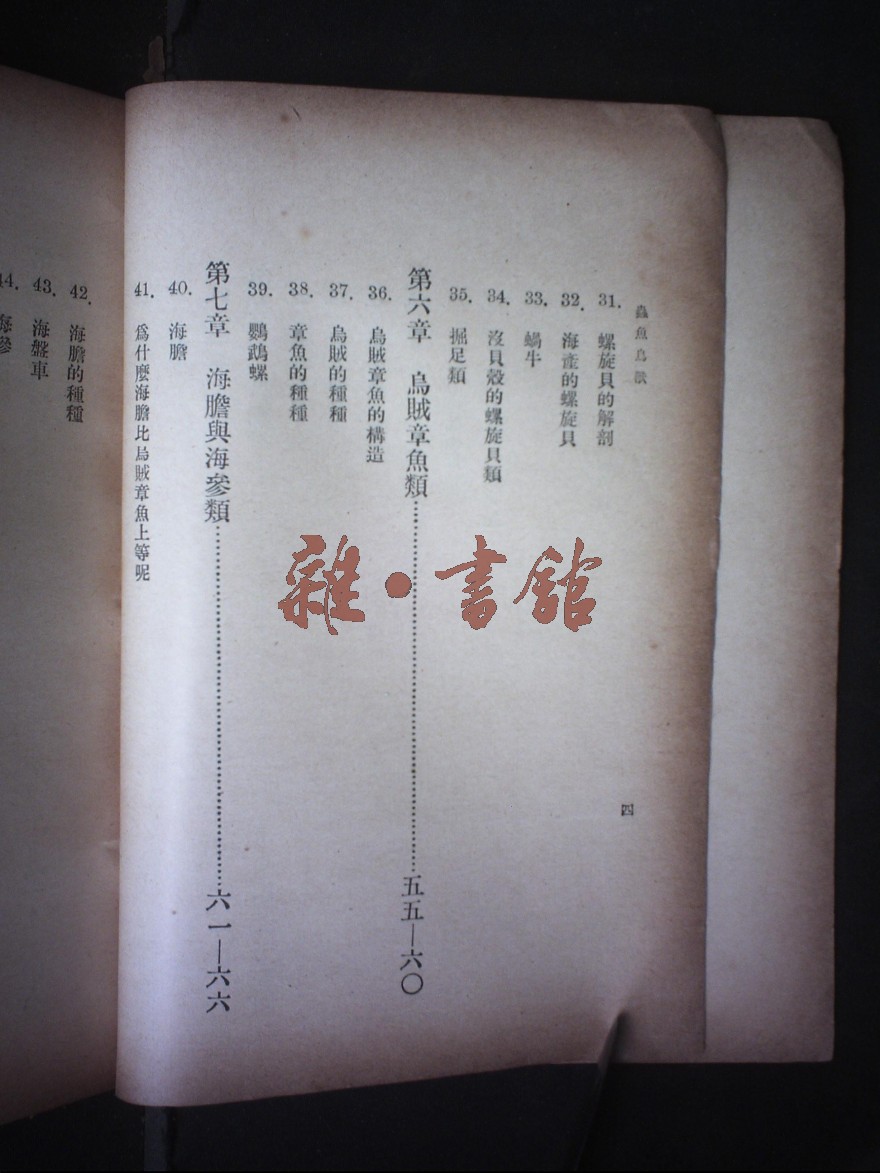 蟲魚鳥獸
31. 螺旋貝的解剖
32. 海產的螺旋貝
33. 蝸牛
34. 沒貝殼的螺旋貝類
35. 掘足類
第六章 烏賊章魚類……五五—六〇
36. 烏賊章魚的構造
37. 烏賊的種種
38. 章魚的種種
39. 鸚鵡螺
第七章 海膽與海參類……六一—六六
40. 海膽
41. 爲什麼海膽比烏賊章魚上等呢
四
42. 海膽的種種
43. 海盤車
44. 海參
雜·書館